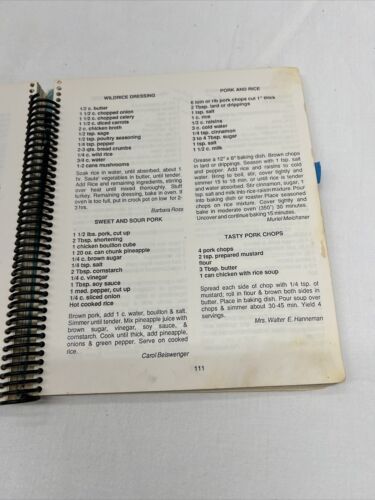 WILDRICE DRESSING
1/2 c. butter
1 1/2 c. chopped onion
1 1/2 c. chopped celery
1 1/2 c. sliced carrots
2 c. chicken broth
1/2 tsp. sage
1/2 tsp. poultry seasoning
1/4 tsp. pepper
2-3 qts. bread crumbs
1/4 c. wild rice
3/4 c. water
1-2 cans mushrooms
Soak rice in water, until absorbed, about 1
hr. Saute' vegetables in butter, until tender.
Add Rice and remaining ingredients, stirring
over heat until mixed thoroughly. Stuff
turkey. Remaining dressing, bake in oven. If
oven is too full, put in crock pot on low for 2-
3 hrs.
Barbara Ross
SWEET AND SOUR PORK
1 1/2 lbs. pork, cut up
2 Tbsp. shortening
1 chicken boullion cube
1 20 oz. can chunk pineapple
1/4 c. brown sugar
1/4 tsp. salt
2 Tbsp. cornstarch
1/4 c. vinegar
1 Tbsp. soy sauce
1 med. pepper, cut up
1/4 c. sliced onion
Hot cooked rice
Brown pork, add 1 c. water, boullion & salt.
Simmer until tender. Mix pineapple juice with
brown sugar, vinegar, soy sauce, &
cornstarch. Cook until thick, add pineapple,
onions & green pepper. Serve on cooked
rice.
Carol Beiswenger
PORK AND RICE
6 loin or rib pork chops cut 1" thick
2 Tbsp. lard or drippings
1 tsp. salt
1 c. rice
1/2 c. raisins
3 c. cold water
1/4 tsp. cinnamon
3 to 4 Tbsp. sugar
1 tsp. salt
1 1/2 c. milk
Grease a 12" x 8" baking dish. Brown chops
in lard or drippings. Season with 1 tsp. salt
and pepper. Add rice and raisins to cold
water. Bring to boil, stir, cover tightly and
simmer 15 to 18 min. or until rice is tender
and water absorbed. Stir cinnamon, sugar, 1
tsp. salt and milk into rice-raisin mixture. Pour
into baking dish or roaster. Place seasoned
chops on rice mixture. Cover tightly and
bake in moderate oven (350°) 30 minutes.
Uncover and continue baking 15 minutes.
Muriel Meichaner
TASTY PORK CHOPS
4 pork chops
2 tsp. prepared mustard
flour
3 Tbsp. butter
1 can chicken with rice soup
Spread each side of chop with 1/4 tsp. of
mustard; roll in flour & brown both sides in
butter. Place in baking dish. Pour soup over
chops & simmer about 30-45 min. Yield 4
servings.
Mrs. Walter E. Hanneman
111